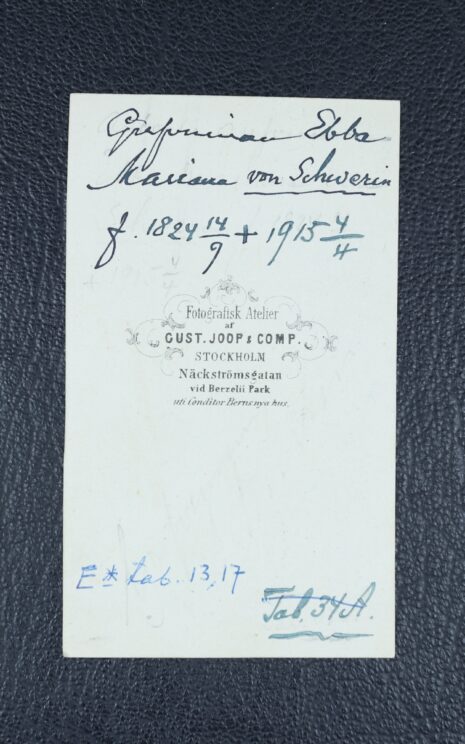 Grefvinnan Ebba
Mariana von Schwerin
f. 1824 14/9 + 1915 4/4
+ 1915 4/4
Fotografisk Atelier
af
GUST. JOOP & COMP.
STOCKHOLM
Näckströmsgatan
vid Berzelii Park
uti Conditor Berns nya hus.
E* tab. 13,17
Tab. 34A.